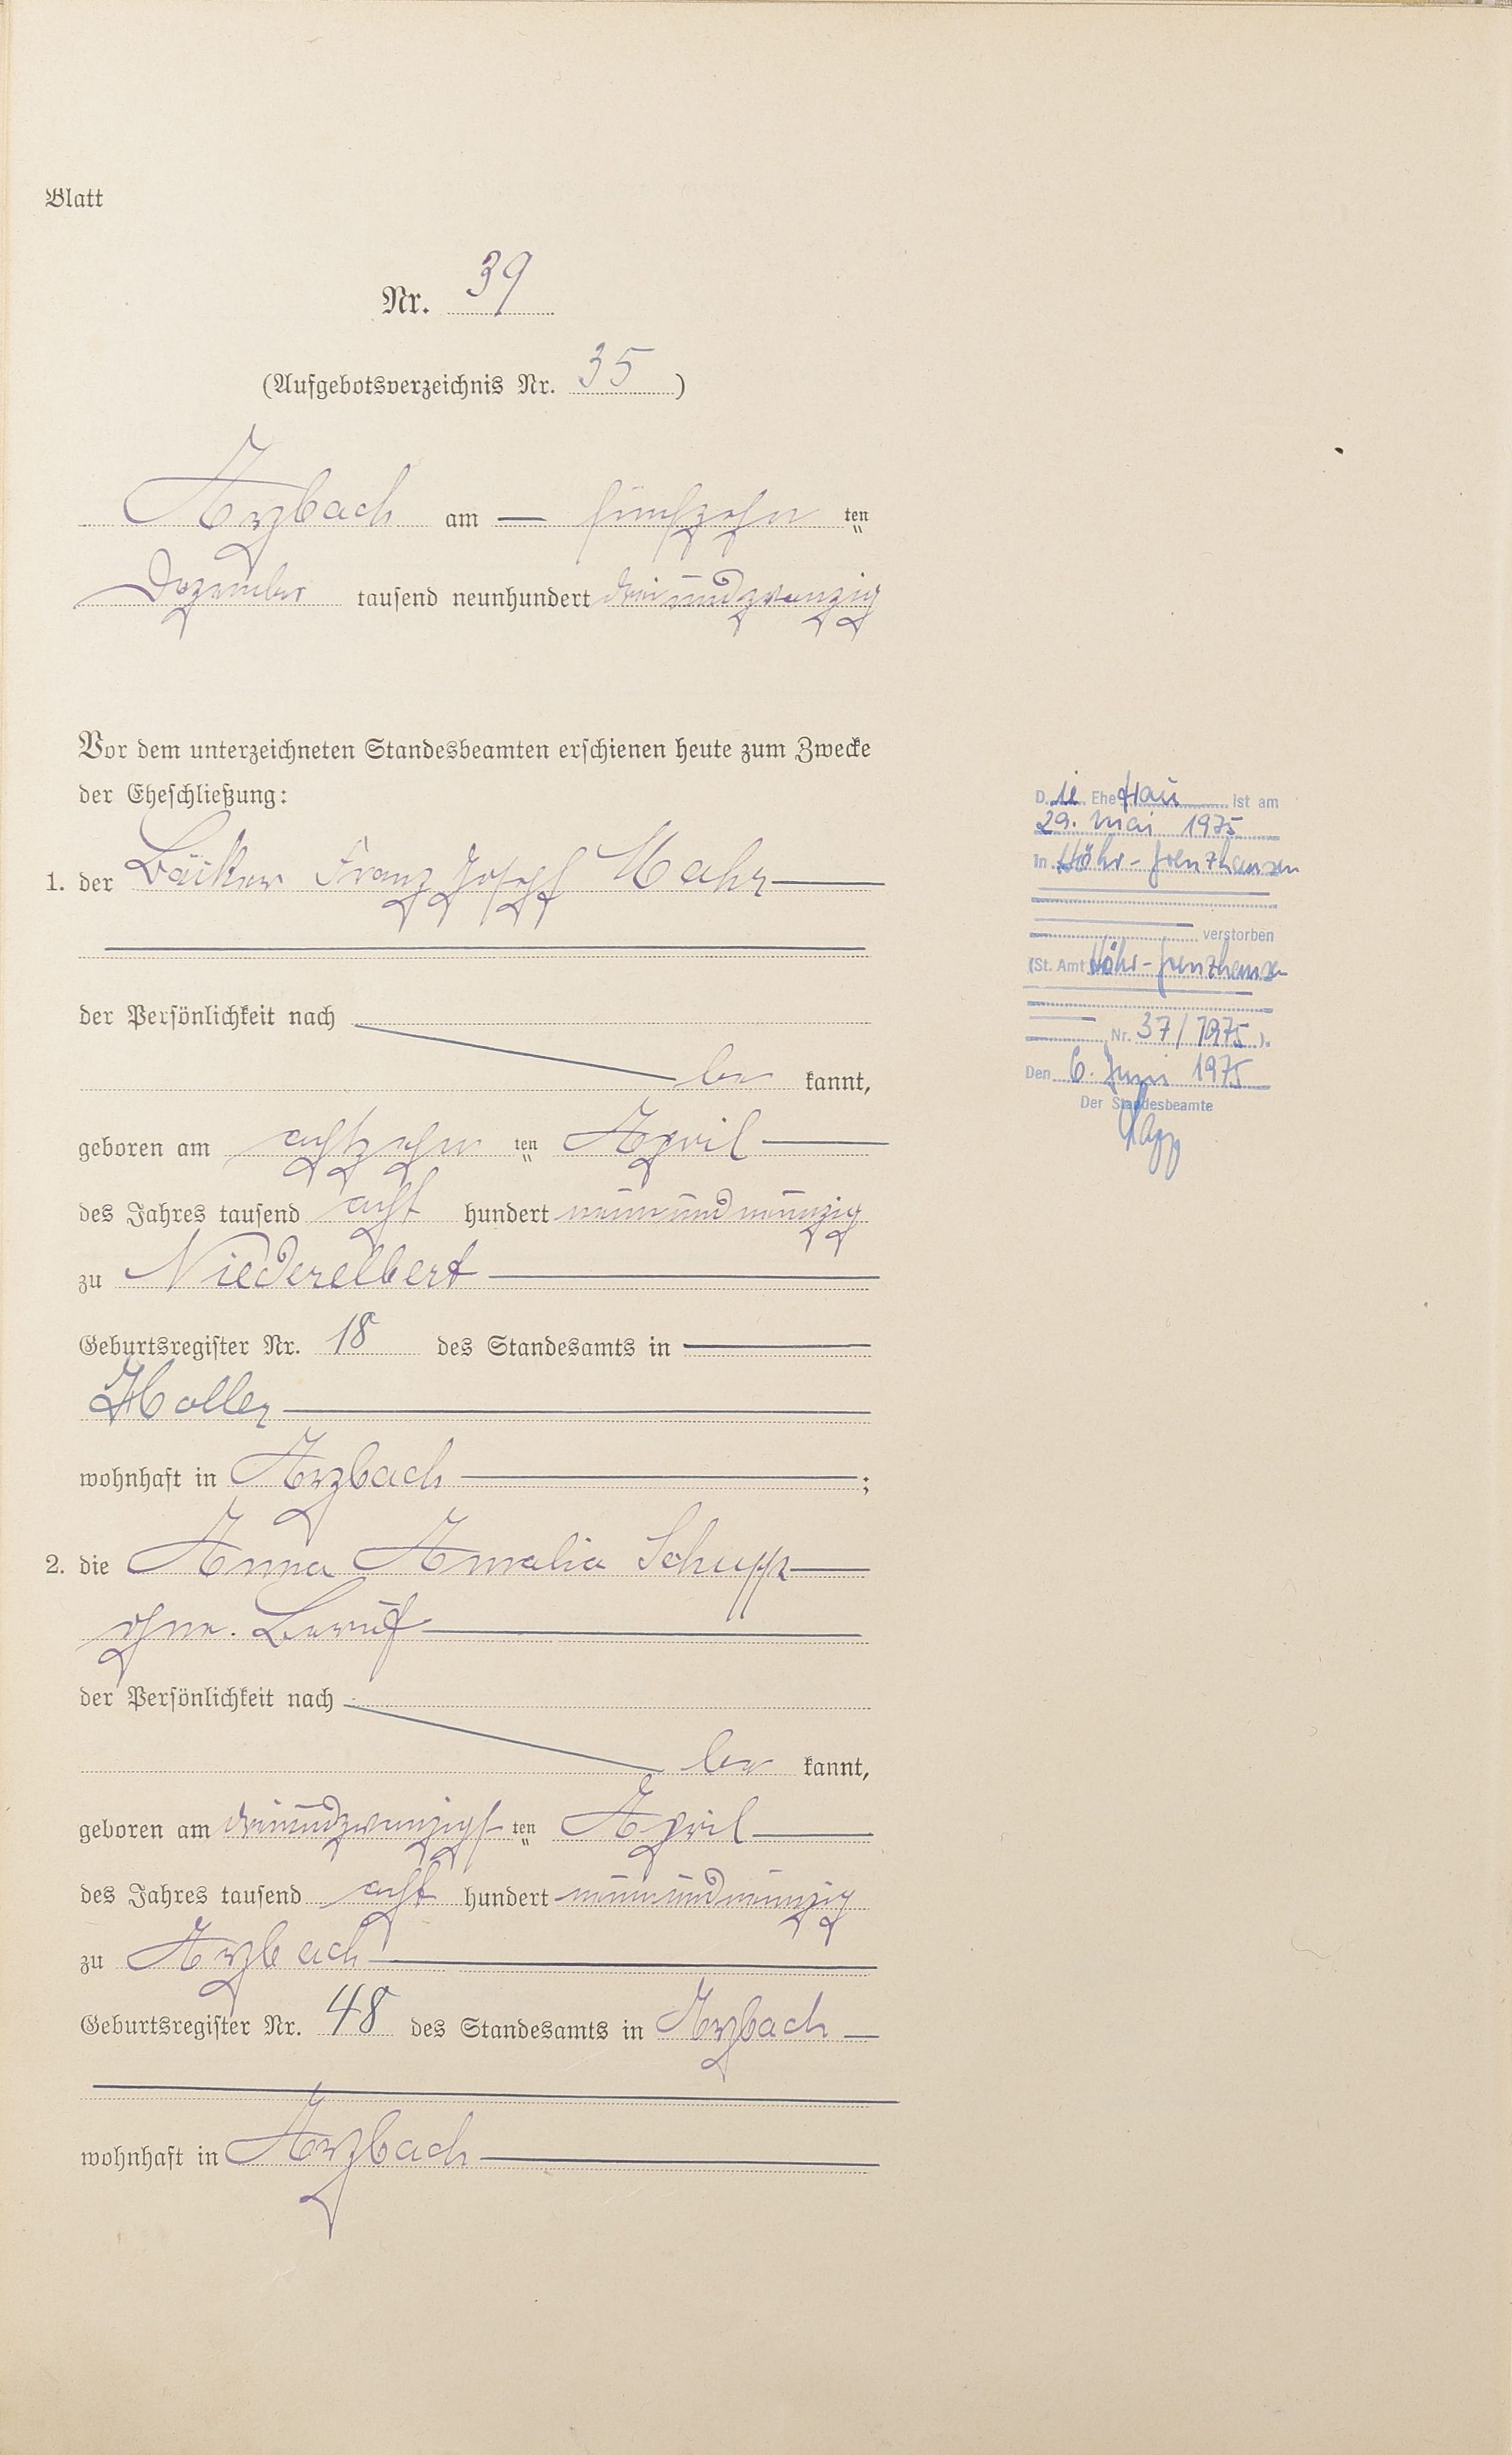 Blatt
Nr. 39
(Aufgebotsverzeichnis Nr. 35)
Arzbach am — fünfzehn ten
Dezember tausend neunhundert dreiundzwanzig
Vor dem unterzeichneten Standesbeamten erschienen heute zum Zwecke
der Eheschließung:
1. der Bäcker Franz Josef Mahr
der Persönlichkeit nach
be kannt,
geboren am achtzehn ten April
des Jahres tausend acht hundert neunundneunzig
zu Niederelbert
Geburtsregister Nr. 18 des Standesamts in
Holler
wohnhaft in Arzbach ;
2. die Anna Amalia Schupp
ohne Beruf
der Persönlichkeit nach
be kannt,
geboren am dreiundzwanzigst ten April
des Jahres tausend acht hundert neunundneunzig
zu Arzbach
Geburtsregister Nr. 48 des Standesamts in Arzbach
wohnhaft in Arzbach
Die Ehefrau ist am
29. Mai 1975
in Höhr-Grenzhausen
verstorben
(St. Amt Höhr-Grenzhausen
Nr. 37/1975).
Den 6. Juni 1975
Der Standesbeamte